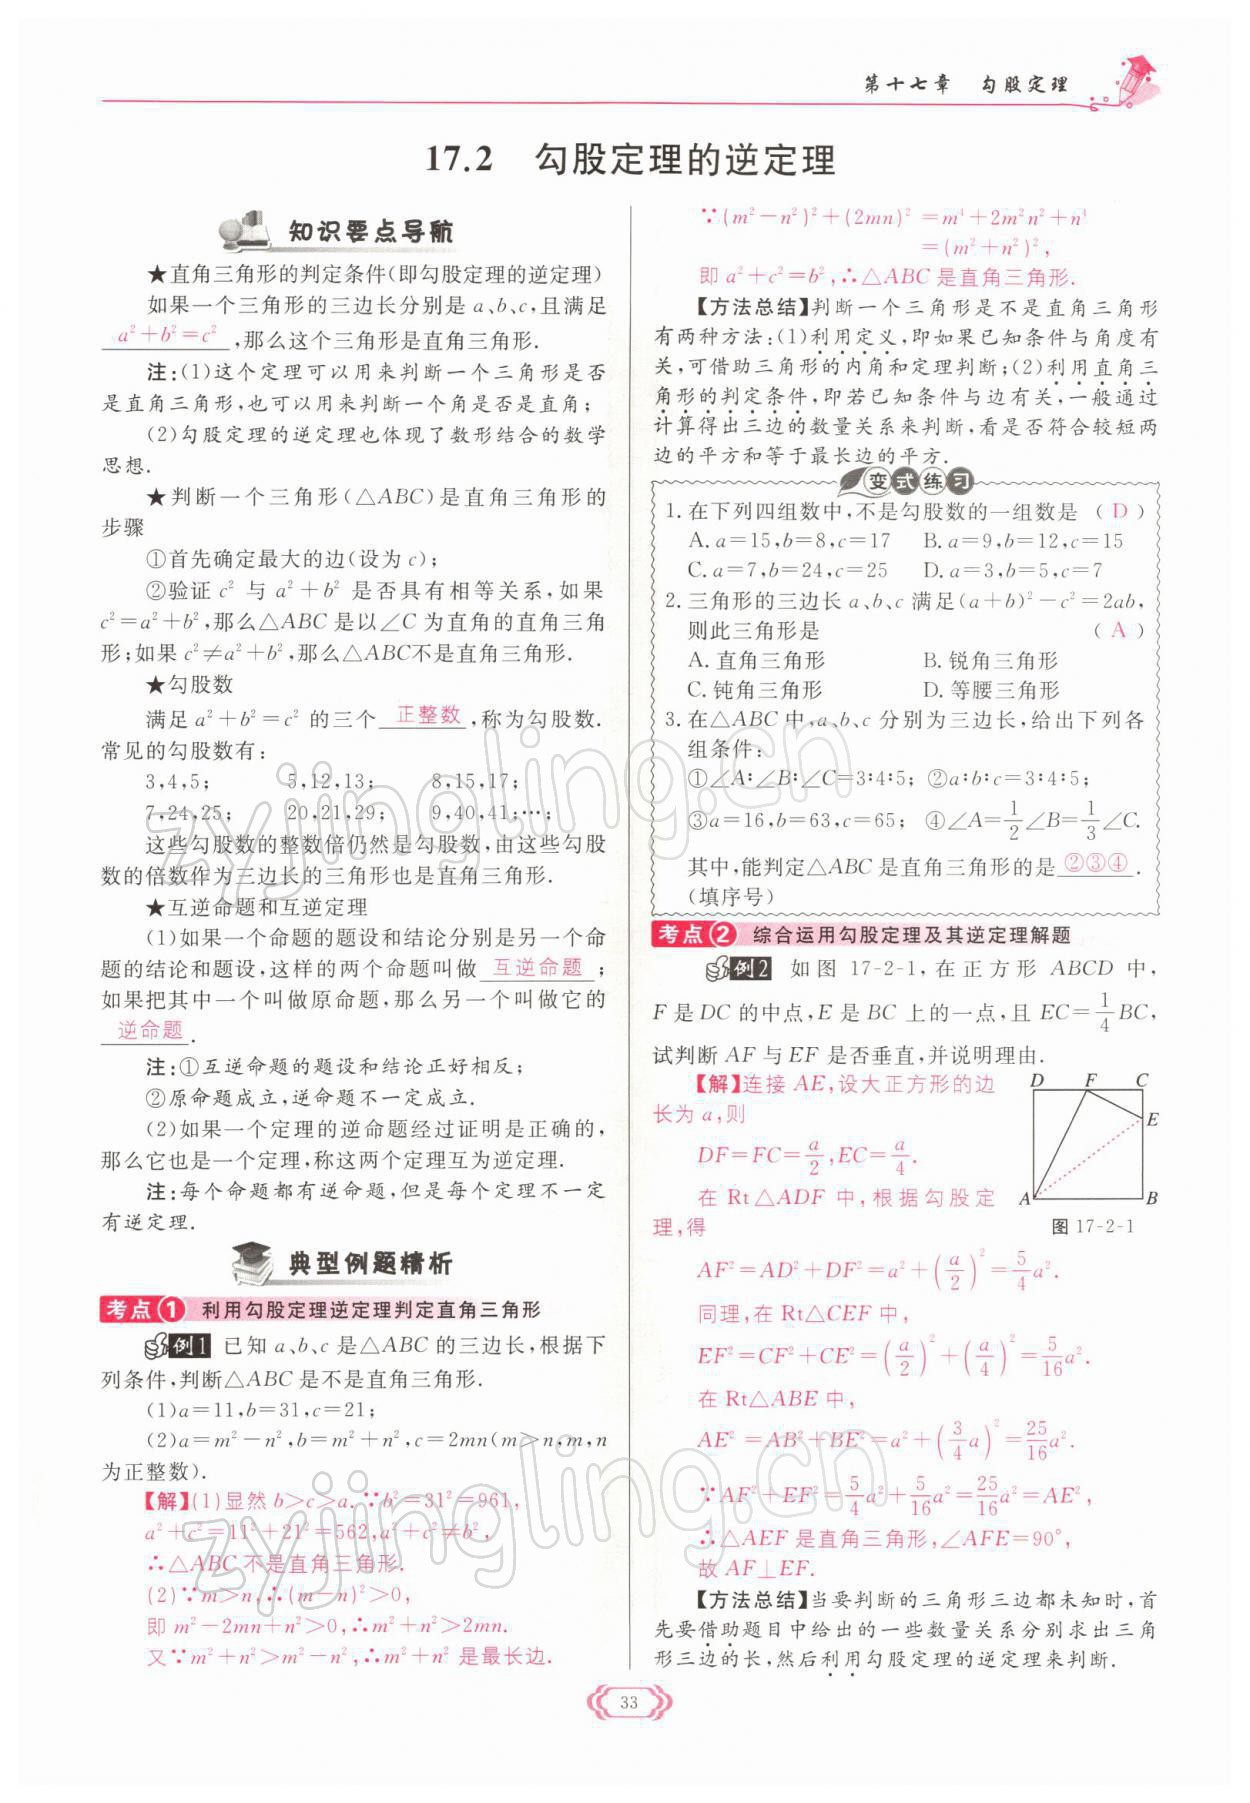 第十七章 勾股定理
17.2 勾股定理的逆定理
知识要点导航
★直角三角形的判定条件(即勾股定理的逆定理)
如果一个三角形的三边长分别是 a、b、c,且满足
a²+b²=c²,那么这个三角形是直角三角形.
注:(1)这个定理可以用来判断一个三角形是否
是直角三角形,也可以用来判断一个角是否是直角;
(2)勾股定理的逆定理也体现了数形结合的数学
思想.
★判断一个三角形(△ABC)是直角三角形的
步骤
①首先确定最大的边(设为 c);
②验证 c² 与 a²+b² 是否具有相等关系,如果
c²=a²+b²,那么△ABC 是以∠C 为直角的直角三角
形;如果 c²≠a²+b²,那么△ABC不是直角三角形.
★勾股数
满足 a²+b²=c² 的三个 正整数 ,称为勾股数.
常见的勾股数有:
3,4,5; 5,12,13; 8,15,17;
7,24,25; 20,21,29; 9,40,41;…;
这些勾股数的整数倍仍然是勾股数,由这些勾股
数的倍数作为三边长的三角形也是直角三角形.
★互逆命题和互逆定理
(1)如果一个命题的题设和结论分别是另一个命
题的结论和题设,这样的两个命题叫做 互逆命题 ;
如果把其中一个叫做原命题,那么另一个叫做它的
逆命题 .
注:①互逆命题的题设和结论正好相反;
②原命题成立,逆命题不一定成立.
(2)如果一个定理的逆命题经过证明是正确的,
那么它也是一个定理,称这两个定理互为逆定理.
注:每个命题都有逆命题,但是每个定理不一定
有逆定理.
典型例题精析
考点1 利用勾股定理逆定理判定直角三角形
例1 已知 a、b、c 是△ABC 的三边长,根据下
列条件,判断△ABC 是不是直角三角形.
(1)a=11,b=31,c=21;
(2)a=m²-n²,b=m²+n²,c=2mn(m>n,m,n
为正整数).
【解】(1)显然 b>c>a.∵b²=31²=961,
a²+c²=11²+21²=562,a²+c²≠b²,
∴△ABC 不是直角三角形.
(2)∵m>n,∴(m-n)²>0,
即 m²-2mn+n²>0,∴m²+n²>2mn.
又∵m²+n²>m²-n²,∴m²+n² 是最长边.
∵(m²-n²)²+(2mn)²=m⁴+2m²n²+n⁴
=(m²+n²)²,
即 a²+c²=b²,∴△ABC 是直角三角形.
【方法总结】判断一个三角形是不是直角三角形
有两种方法:(1)利用定义,即如果已知条件与角度有
关,可借助三角形的内角和定理判断;(2)利用直角三
角形的判定条件,即若已知条件与边有关,一般通过
计算得出三边的数量关系来判断,看是否符合较短两
边的平方和等于最长边的平方.
变式练习
1. 在下列四组数中,不是勾股数的一组数是 ( D )
A. a=15,b=8,c=17 B. a=9,b=12,c=15
C. a=7,b=24,c=25 D. a=3,b=5,c=7
2. 三角形的三边长 a、b、c 满足(a+b)²-c²=2ab,
则此三角形是 ( A )
A. 直角三角形 B. 锐角三角形
C. 钝角三角形 D. 等腰三角形
3. 在△ABC 中,a、b、c 分别为三边长,给出下列各
组条件:
①∠A∶∠B∶∠C=3∶4∶5; ②a∶b∶c=3∶4∶5;
③a=16,b=63,c=65; ④∠A=1/2∠B=1/3∠C.
其中,能判定△ABC 是直角三角形的是 ②③④ .
(填序号)
考点2 综合运用勾股定理及其逆定理解题
例2 如图 17-2-1,在正方形 ABCD 中,
F 是 DC 的中点,E 是 BC 上的一点,且 EC=1/4BC,
试判断 AF 与 EF 是否垂直,并说明理由.
【解】连接 AE,设大正方形的边
长为 a,则
DF=FC=a/2,EC=a/4.
在 Rt△ADF 中,根据勾股定
理,得
D F C
E
A B
图 17-2-1
AF²=AD²+DF²=a²+(a/2)²=5/4a².
同理,在 Rt△CEF 中,
EF²=CF²+CE²=(a/2)²+(a/4)²=5/16a².
在 Rt△ABE 中,
AE²=AB²+BE²=a²+(3/4a)²=25/16a².
∵AF²+EF²=5/4a²+5/16a²=25/16a²=AE²,
∴△AEF 是直角三角形,∠AFE=90°,
故 AF⊥EF.
【方法总结】当要判断的三角形三边都未知时,首
先要借助题目中给出的一些数量关系分别求出三角
形三边的长,然后利用勾股定理的逆定理来判断.
33
zyjingling.cn
zyjingling.cn